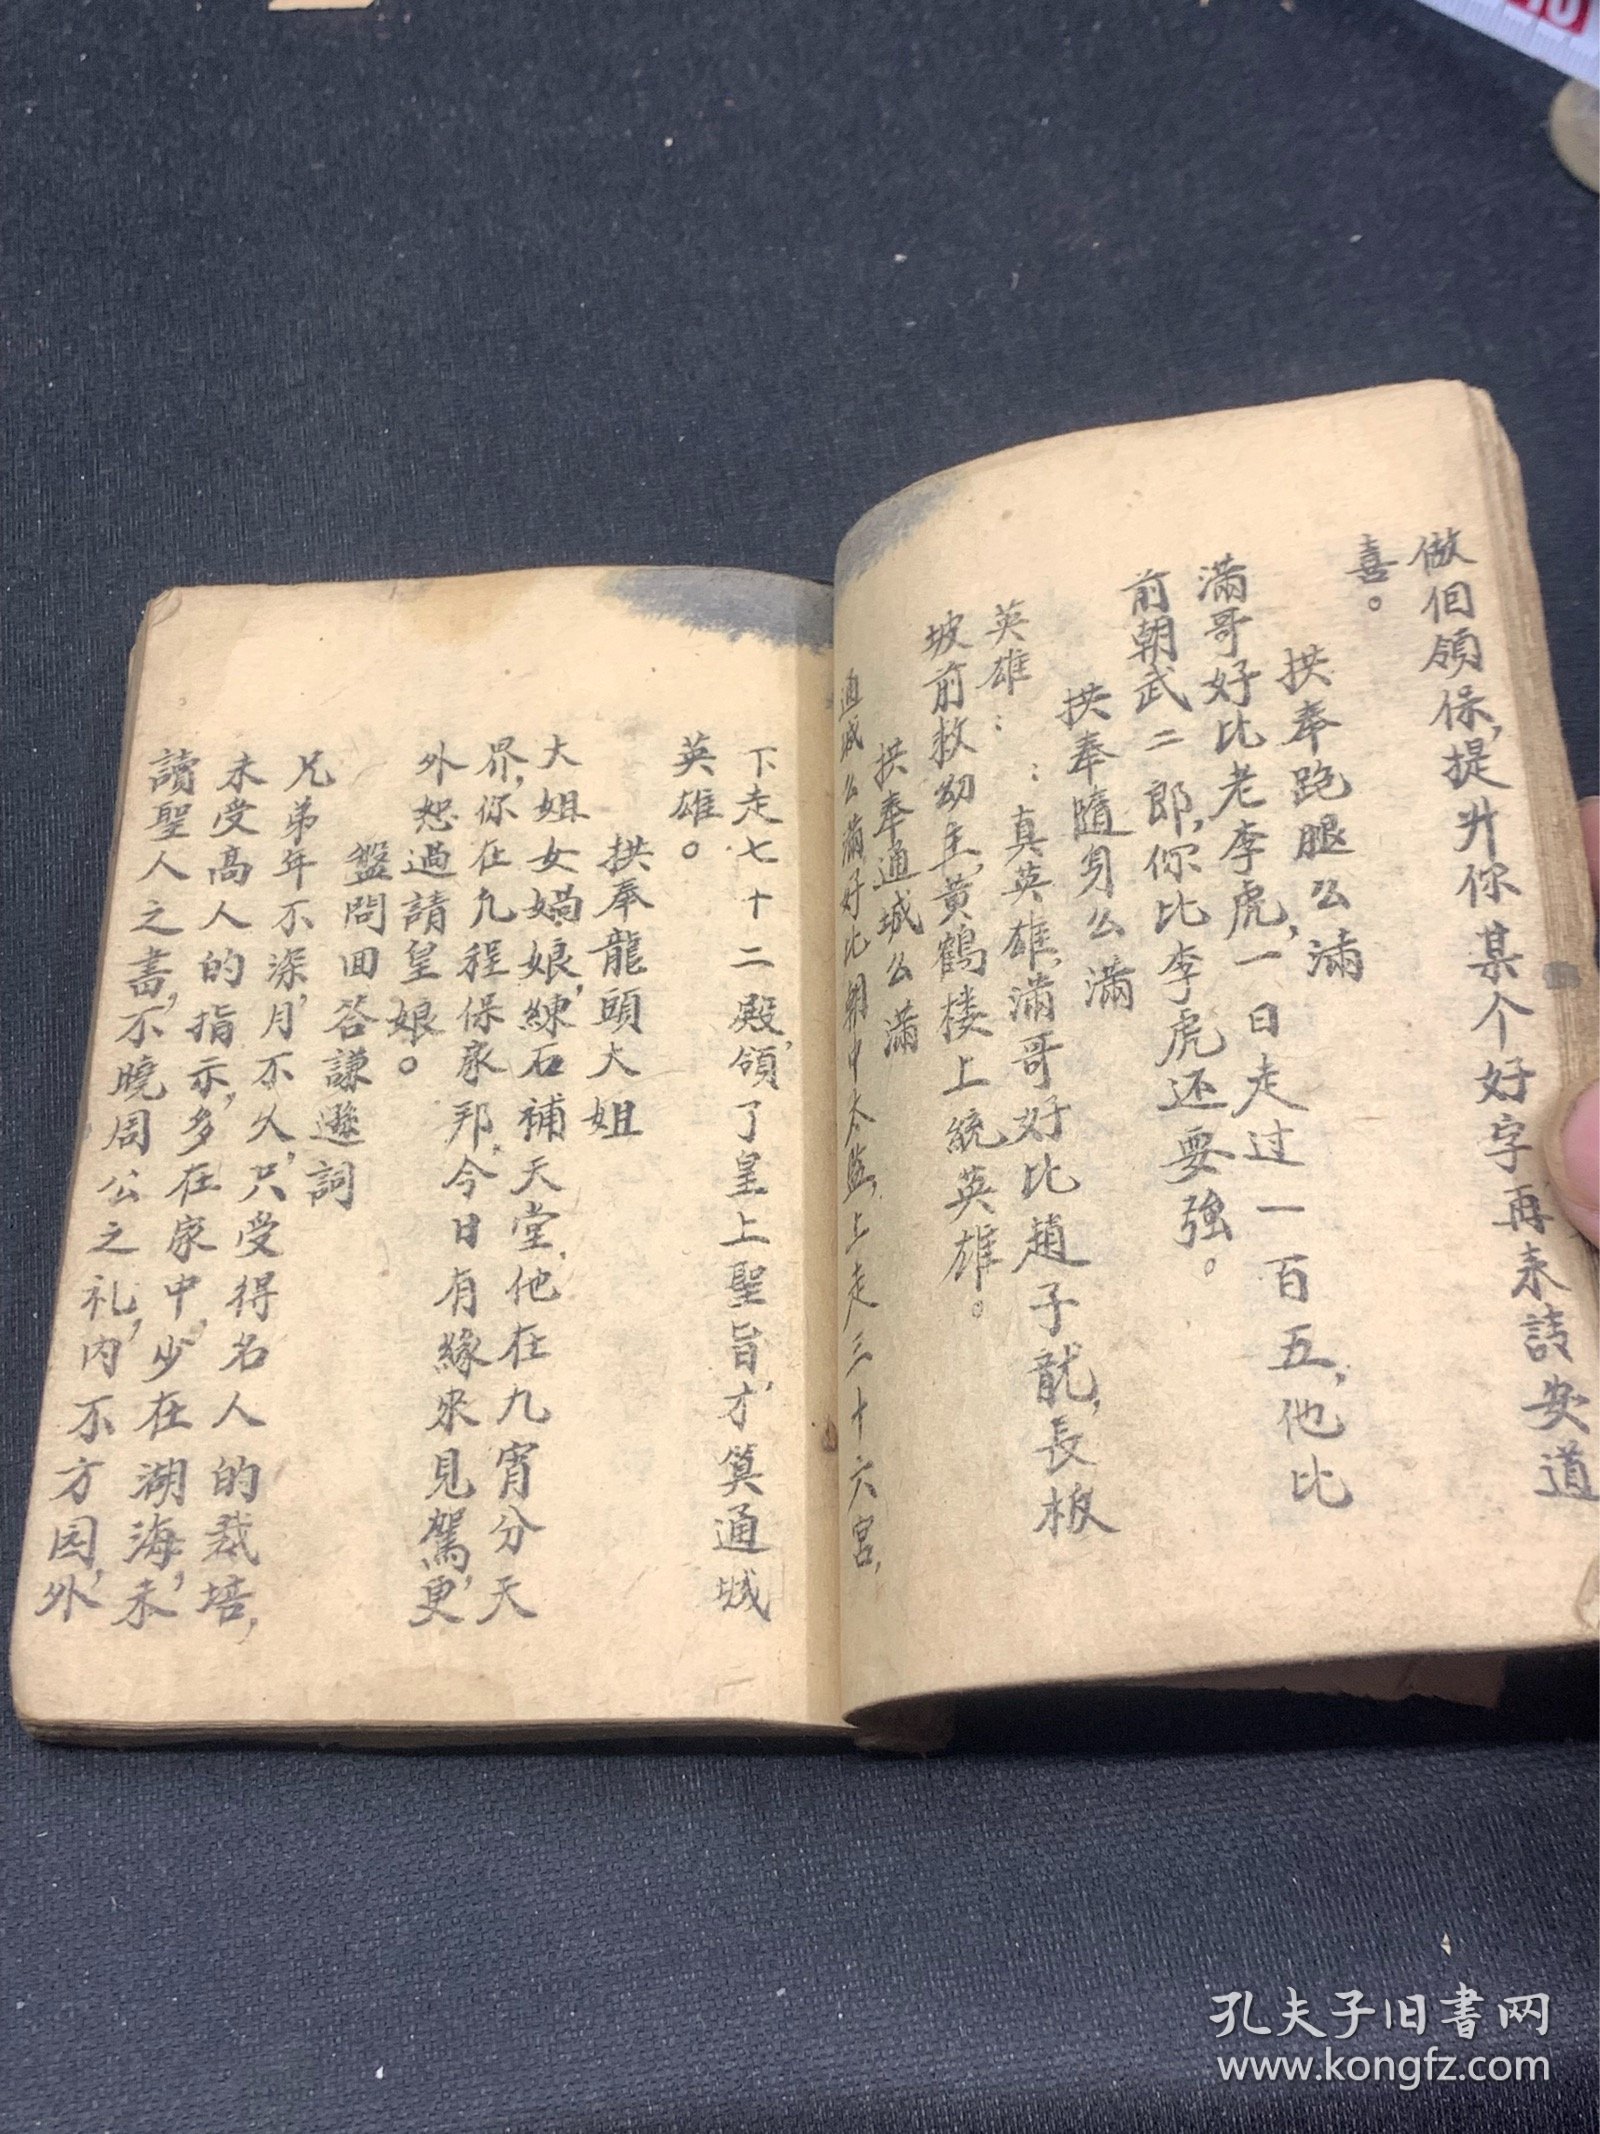 做佪領保，提升你某个好字再来請安道
喜。
拱奉跑腿么滿
滿哥好比老李虎，一日走过一百五，他比
前朝武二郎，你比李虎还要強。
拱奉隨身么滿
英雄：：真英雄，滿哥好比趙子龍，長板
坡前救幼主，黄鶴楼上統英雄。
拱奉通城么滿
通城么滿好比朝中太监，上走三十六宮，
下走七十二殿，領了皇上聖旨，才算通城
英雄。
拱奉龍頭大姐
大姐女媧娘，練石補天堂，他在九宵分天
界，你在九程保家邦，今日有緣來見駕，更
外恕過請皇娘。
盤問回答謙遜詞
兄弟年不深，月不久，只受得名人的栽培，
未受高人的指示，多在家中，少在湖海，未
讀聖人之書，不曉周公之礼，内不方园，外
孔夫子旧書网
www.kongfz.com